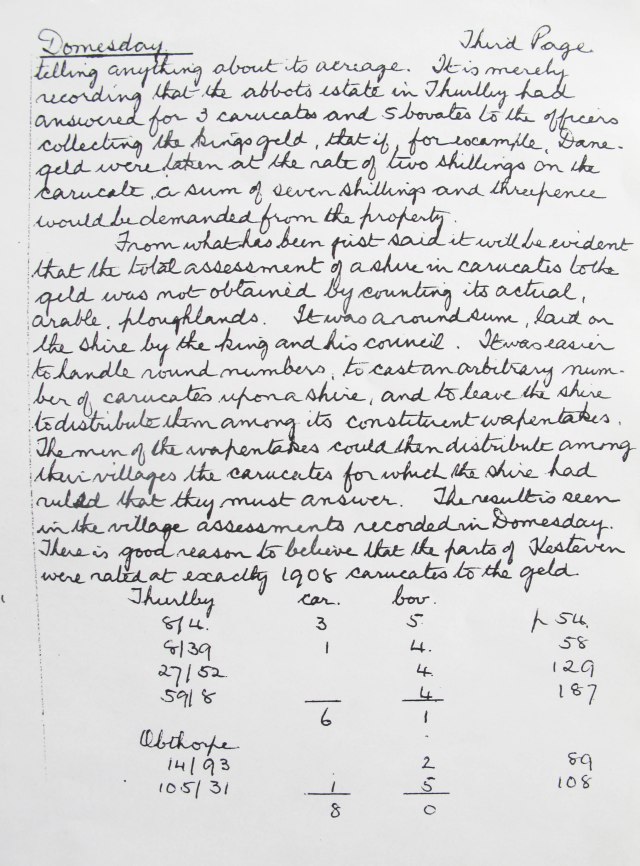 Domesday Third Page.
telling anything about its acreage. It is merely
recording that the abbots estate in Thurlby had
answered for 3 carucates and 5 bovates to the officers
collecting the kings geld, that if, for example, Dane-
geld were taken at the rate of two shillings on the
carucate, a sum of seven shillings and threepence
would be demanded from the property.
From what has been just said it will be evident
that the total assessment of a shire in carucates to the
geld was not obtained by counting its actual,
arable, ploughlands. It was a round sum, laid on
the shire by the king and his council. It was easier
to handle round numbers, to cast an arbitrary num-
ber of carucates upon a shire, and to leave the shire
to distribute them among its constituent wapentakes.
The men of the wapentakes could then distribute among
their villages the carucates for which the shire had
ruled that they must answer. The result is seen
in the village assessments recorded in Domesday.
There is good reason to believe that the parts of Kesteven
were rated at exactly 1908 carucates to the geld.
Thurlby car. bov.
8/4. 3 5. p 54.
8/39 1 4. 58
27/52 4. 129
59/8 4 187
6 1
Obthorpe
14/93 2 89
105/31 1 5 108
8 0